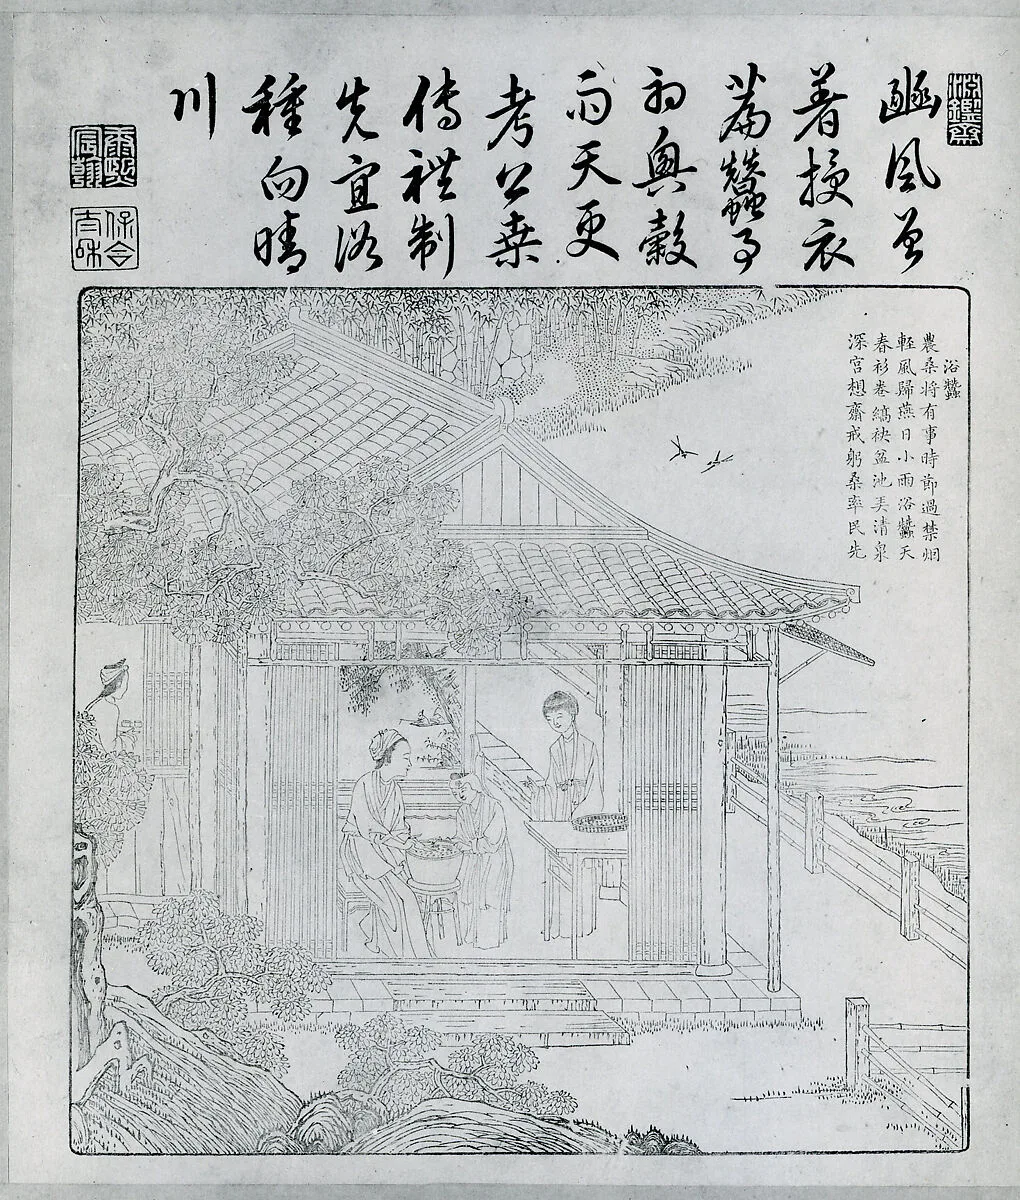 淵鑑齋
豳風曾
著授衣
篇蠶事
初興穀
雨天更
考公桑
傳禮制
先宜浴
種向晴
川
康熙宸翰
保合太和
浴蠶
農桑將有事時節過禁烟
輕風歸燕日小雨浴蠶天
春衫卷縞袂盆池弄清泉
深宮想齋戒躬桑率民先